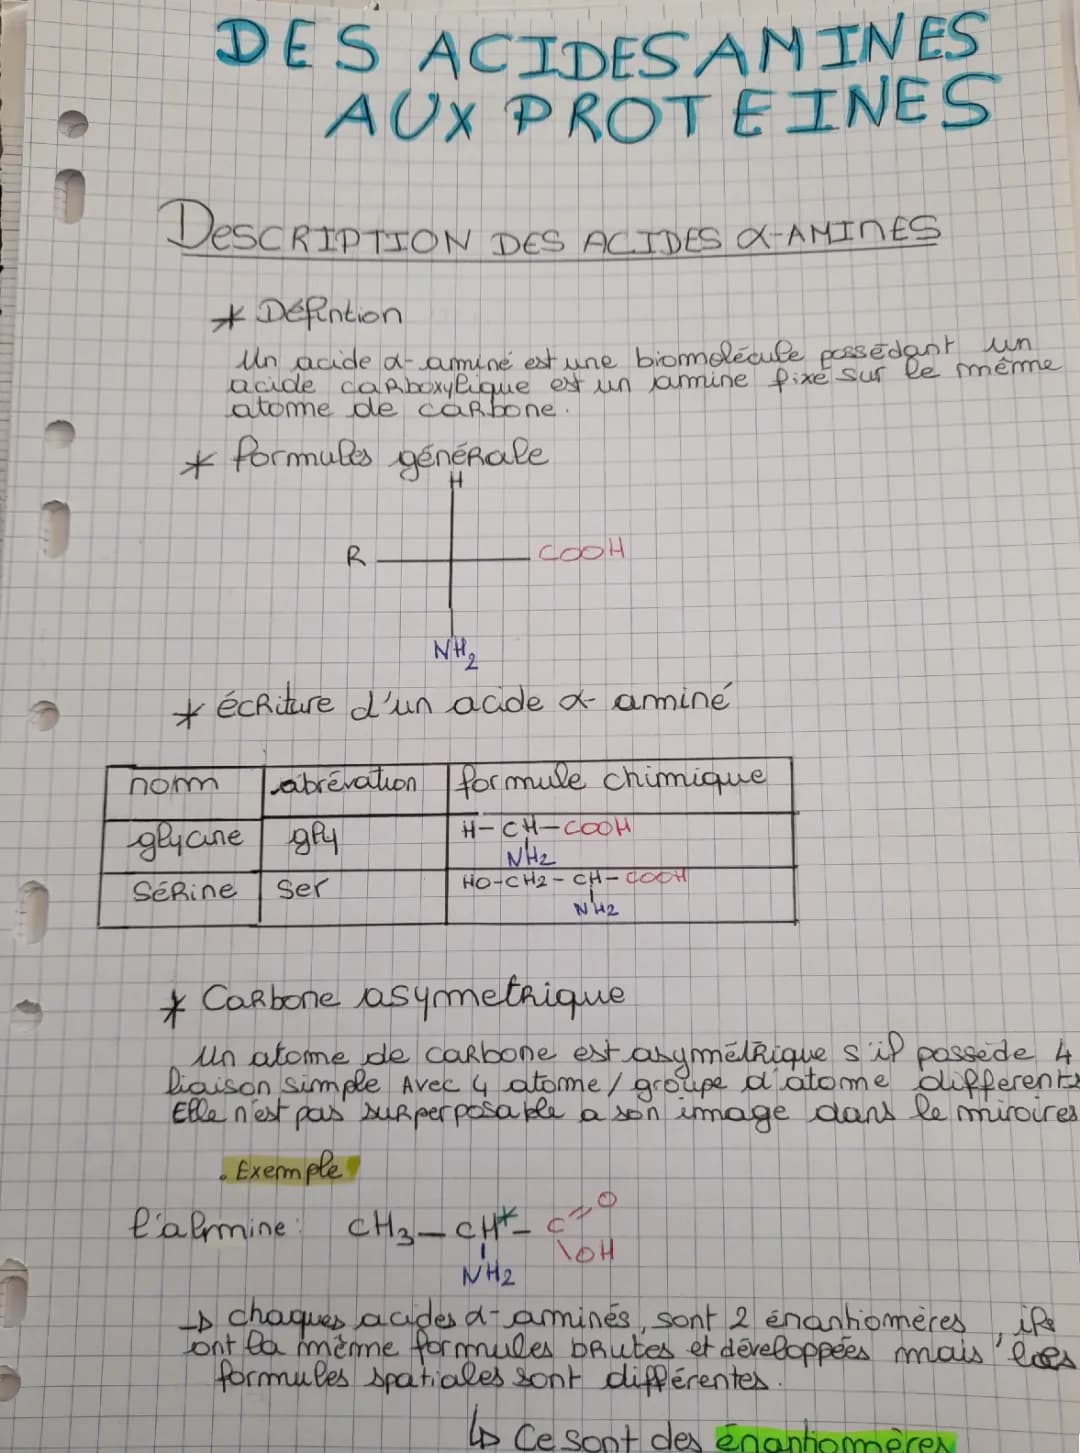 DES ACIDES AMINES
AUX PROTEINES
DESCRIPTION DES ACIDES α-AMINES
* Défintion
Un acide α-aminé est une biomolécule possédant un
acide carboxylique est un amine fixé sur le même
atome de carbone.
* formules générale
H
R COOH
NH2
* écriture d'un acide α-aminé
nom abrévation formule chimique
glycine gly H-CH-COOH
NH2
Sérine Ser HO-CH2-CH-COOH
NH2
* Carbone asymetrique
Un atome de carbone est asymétrique s'il possède 4
liaison simple Avec 4 atome/groupe d'atome différents
Elle n'est pas surperposable a son image dans le miroires
. Exemple
CH3-CH*-C=O
\OH
NH2
→ chaques acides α-aminés, sont 2 énantiomères, ils
ont la même formules brutes et développées mais les
formules spatiales sont différentes.
↳ Ce sont des énantiomères